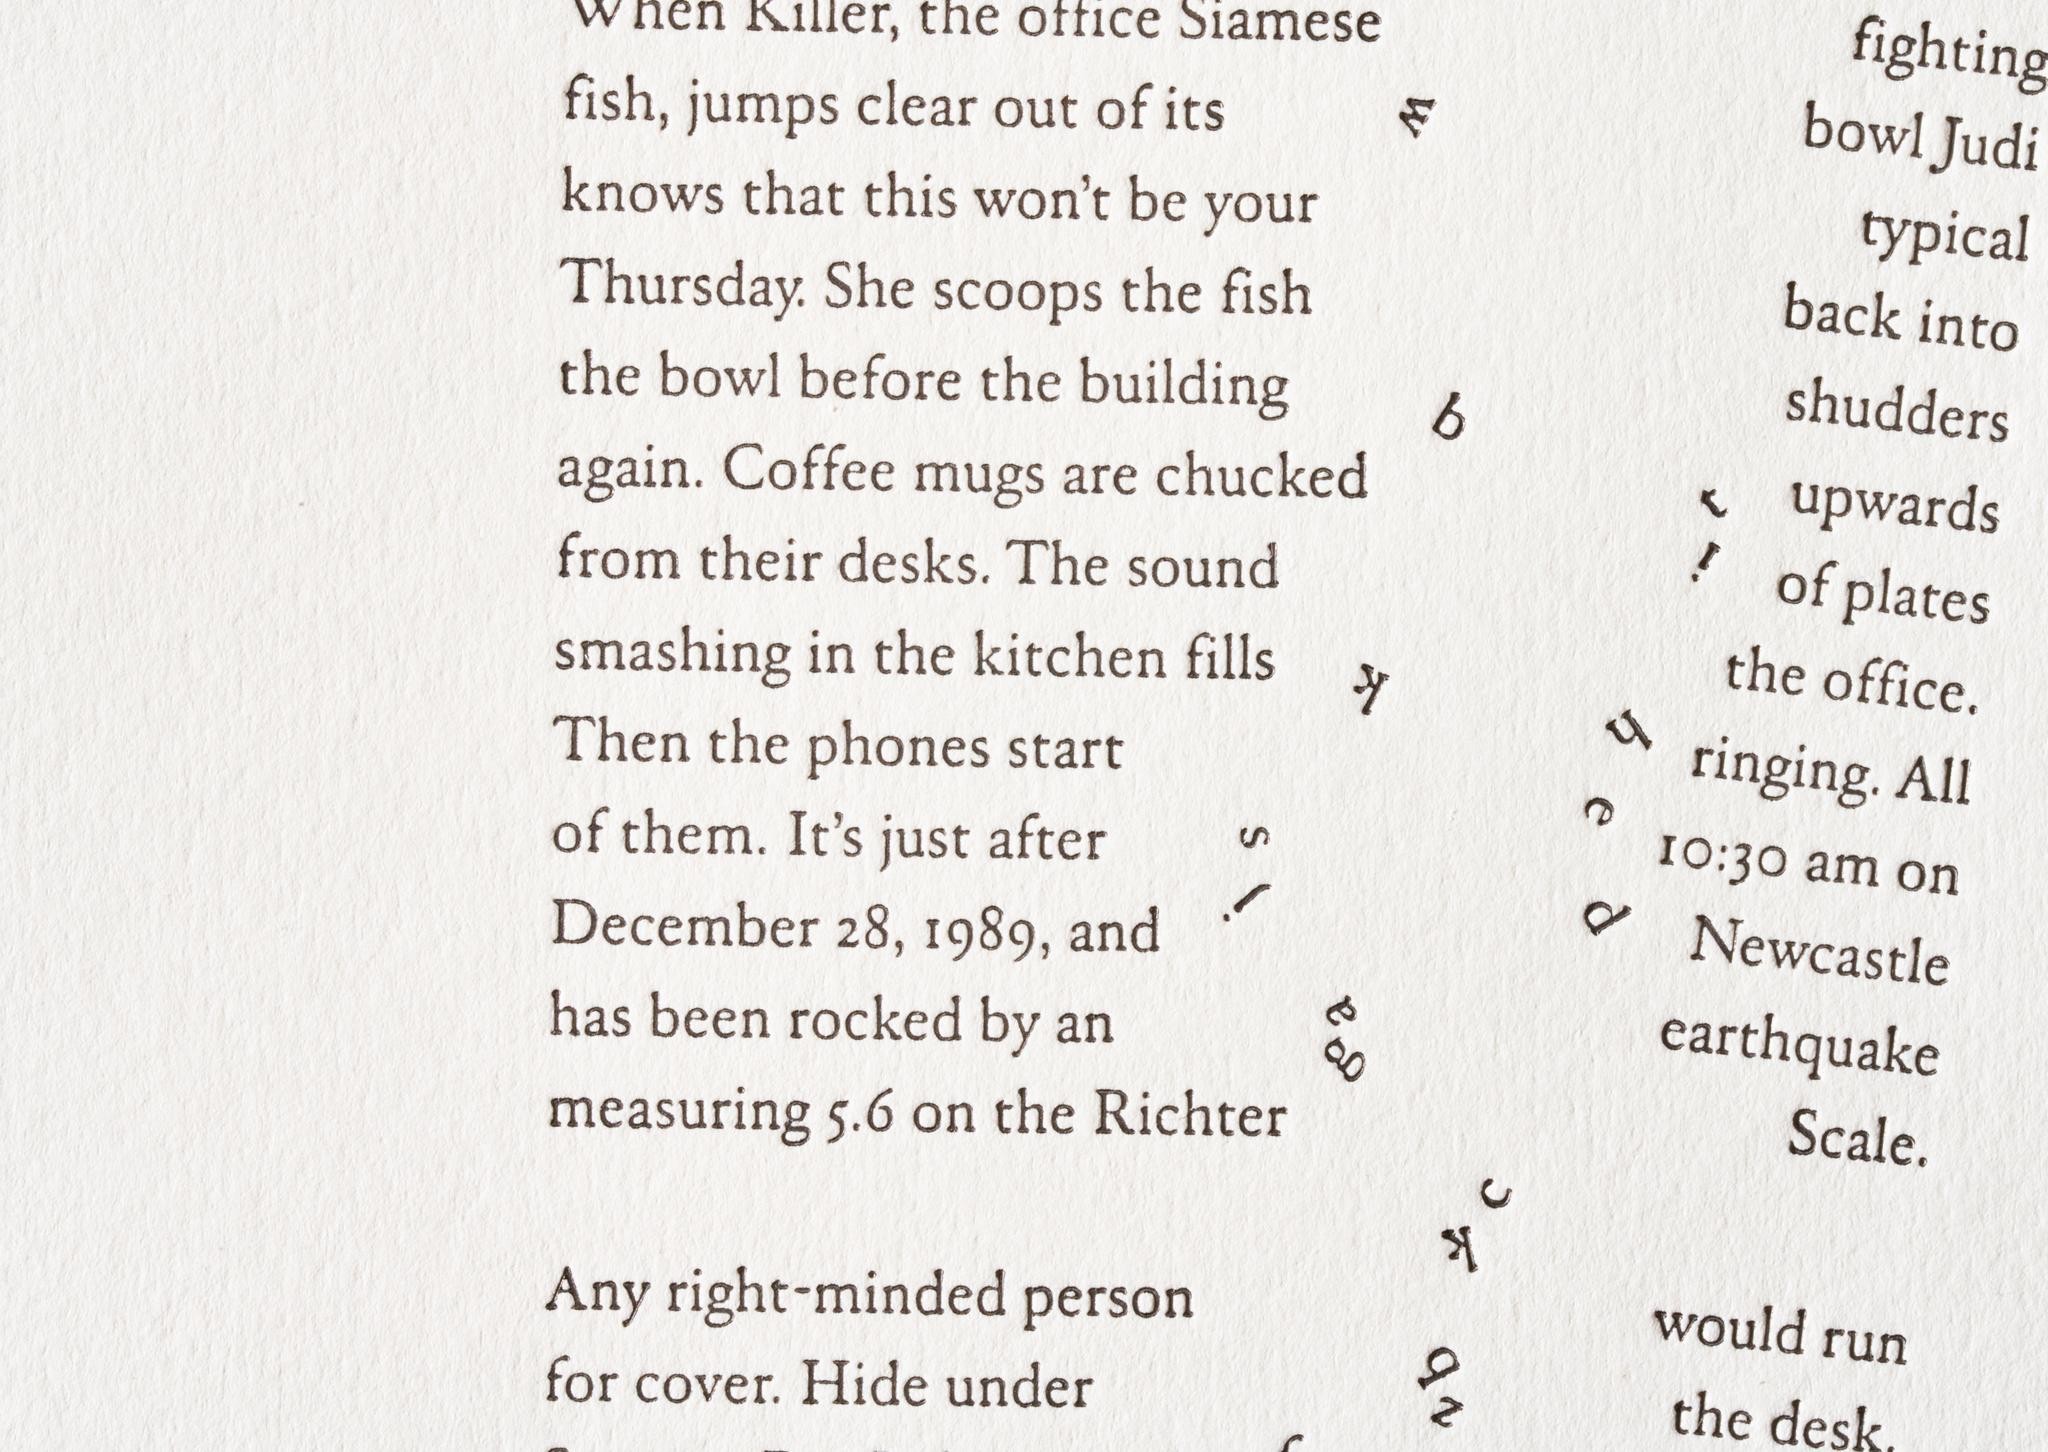 When Killer, the office Siamese fighting
fish, jumps clear out of its w bowl Judi
knows that this won't be your typical
Thursday. She scoops the fish back into
the bowl before the building b shudders
again. Coffee mugs are chucked r upwards
from their desks. The sound ! of plates
smashing in the kitchen fills k the office.
Then the phones start u ringing. All
of them. It's just after s e 10:30 am on
December 28, 1989, and i d Newcastle
has been rocked by an a earthquake
measuring 5.6 on the Richter g Scale.
c
k
Any right-minded person would run
for cover. Hide under the desk.